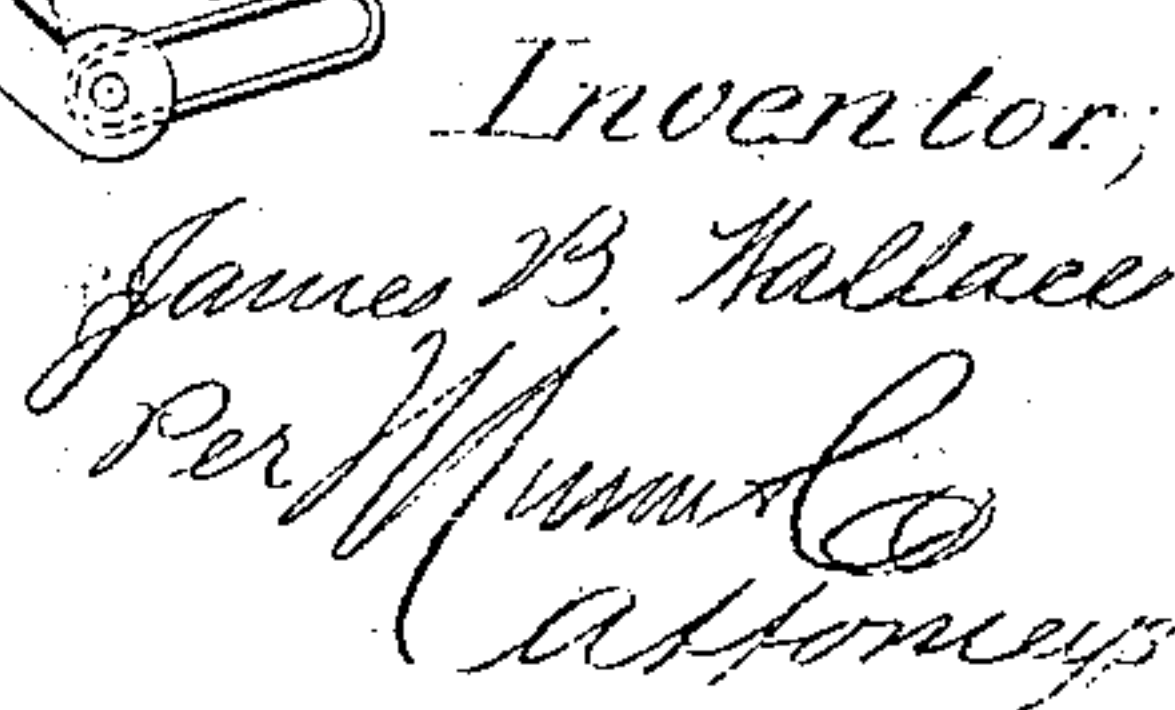 Inventor;
James B. Wallace
Per Munn & Co
Attorneys